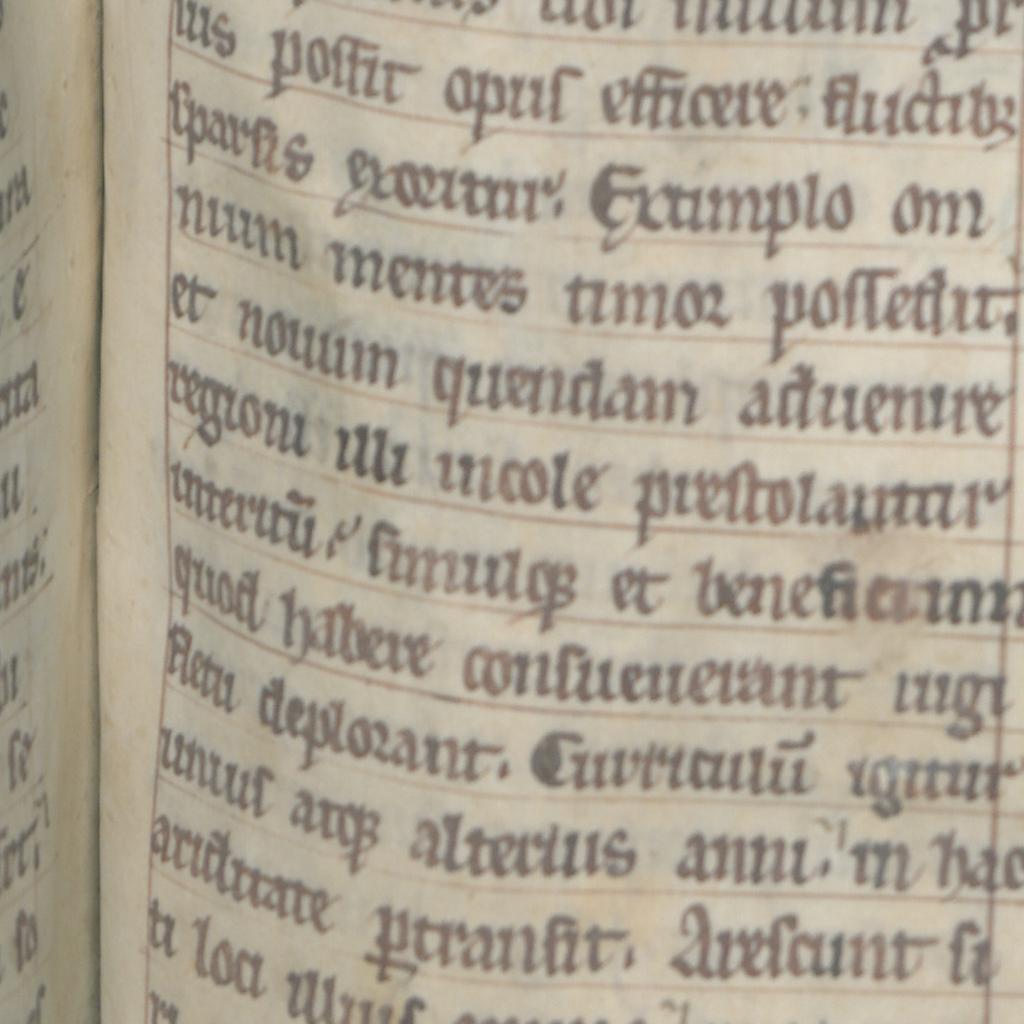 ius possit opus efficere: fluctibꝫ
sparsis exoritur. Extimplo om
nium mentes timor possedit.
et nouum quendam aduenire
regioni illi incole prestolantur
interitū, simulqꝫ et beneficium
quod habere consueuerant iugi
fletu deplorant. Curriculū igitur
unius atqꝫ alterius anni. in hac
ariditate ꝑtransiit. Arescunt si
ti loci illius